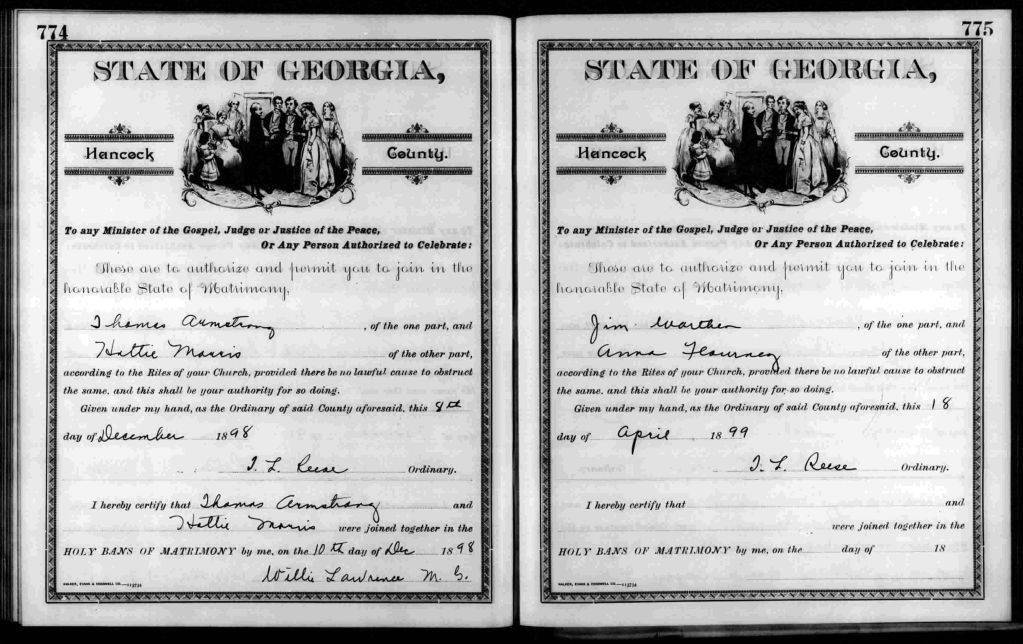 774
STATE OF GEORGIA,
Hancock County.
To any Minister of the Gospel, Judge or Justice of the Peace,
Or Any Person Authorized to Celebrate:
These are to authorize and permit you to join in the
honorable State of Matrimony,
Thomas Armstrong , of the one part, and
Hattie Morris of the other part,
according to the Rites of your Church, provided there be no lawful cause to obstruct
the same, and this shall be your authority for so doing.
Given under my hand, as the Ordinary of said County aforesaid, this 8th
day of December 1898
T. L. Reese Ordinary.
I hereby certify that Thomas Armstrong and
Hattie Morris were joined together in the
HOLY BANS OF MATRIMONY by me, on the 10th day of Dec 1898
Willie Lawrence M. G.
775
STATE OF GEORGIA,
Hancock County.
To any Minister of the Gospel, Judge or Justice of the Peace,
Or Any Person Authorized to Celebrate:
These are to authorize and permit you to join in the
honorable State of Matrimony,
Jim Warthen , of the one part, and
Anna Flournoy of the other part,
according to the Rites of your Church, provided there be no lawful cause to obstruct
the same, and this shall be your authority for so doing.
Given under my hand, as the Ordinary of said County aforesaid, this 18
day of April 1899
T. L. Reese Ordinary.
I hereby certify that and
were joined together in the
HOLY BANS OF MATRIMONY by me, on the day of 18